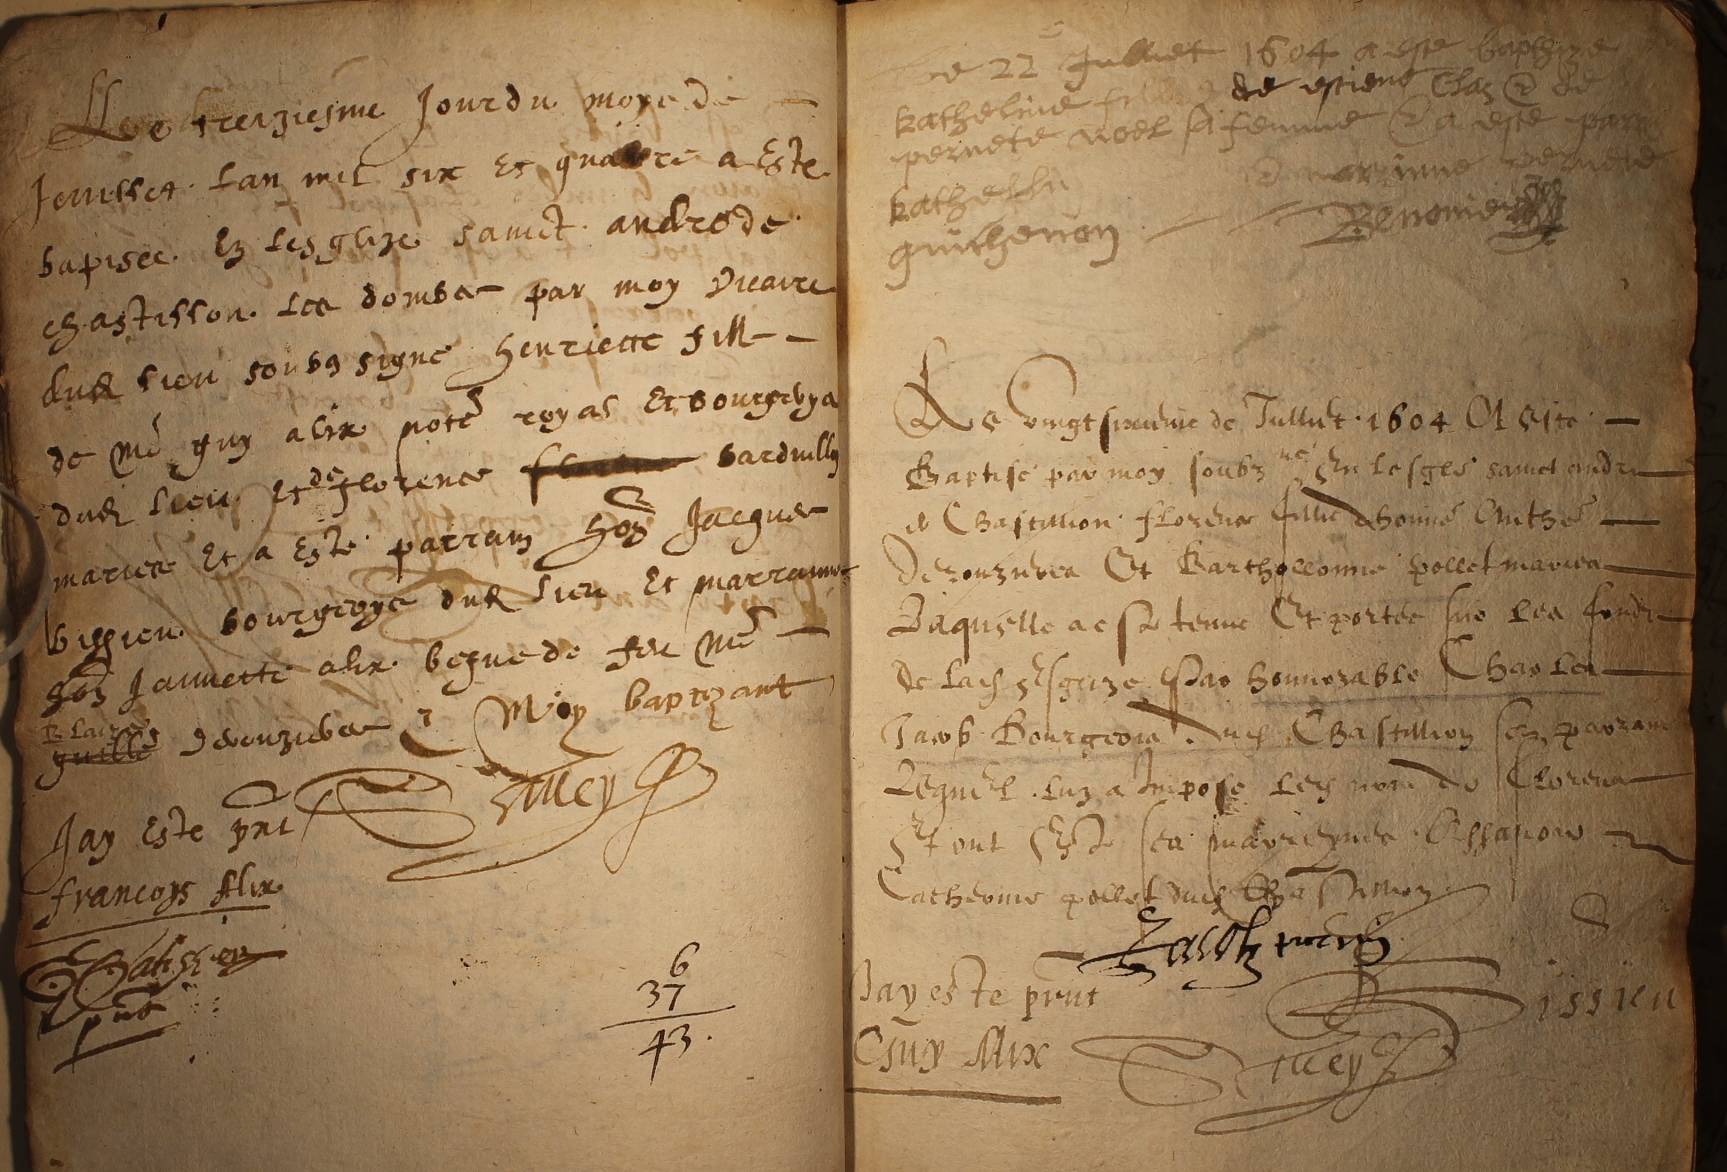 Le treiziesme Jour du moys de
Jeuillet lan mil six et quatre a este
bapisee En lesglize sainct andre de
chastillon les dombes par moy vicaire
dud lieu soubz signe henriette fille
de Me guy alix note royal et bourgeoys
dud lieu et de florence barduilly
maries Et a este parrain hon Jacques
bissieu bourgeoys dud lieu Et marrainne
hon Jannette alix vefve de feu Me
guille deronzieres Moy baptizant
Jay Este pnt
francoys Alix
pnt
6
37
43.
Le 22 Juillet 1604 a este baptize
katheline fille de estiene Claz & de
pernete noel sa femme & a este parr
kathelin & marinne pernete
guichenon Benonier
Le vingt sixieme de Jullet 1604 A este
Baptise par moy soubz né En lesglé sainct andre
de Chastillon florence fille dhonne Anthe
Deronzieres Et Barthollomie pollet maries
Laquelle a este tenue Et portee sus les fondz
de lad Esglize Par honnorable Charles
Jacob Bourgeois dud Chastillion son parrain
Lequel luy a Impose led nom de Florence
Et ont Este sa marreyne
Catherine pollet dud Chastillion
Jay este pnt
Guy Alix
issieu